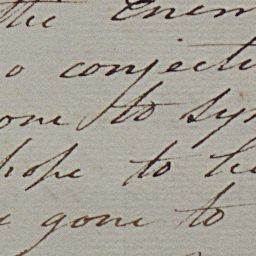 the Enem
o conjectu
one to Syr
hope to he
e gone to